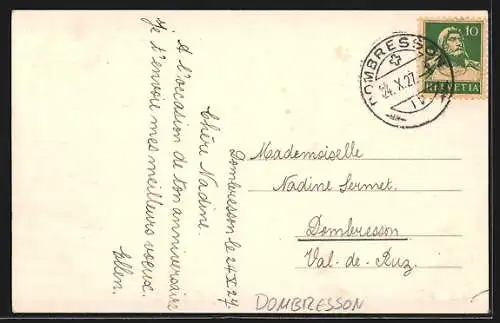 Dombresson le 24 X 27.
Chère Nadine.
A l'occasion de ton anniversaire
je t'envoie mes meilleurs voeux.
Ellen.
10
HELVETIA
DOMBRESSON
24.X.27.
Mademoiselle
Nadine Sermet.
Dombresson
Val-de-Ruz.
DOMBRESSON